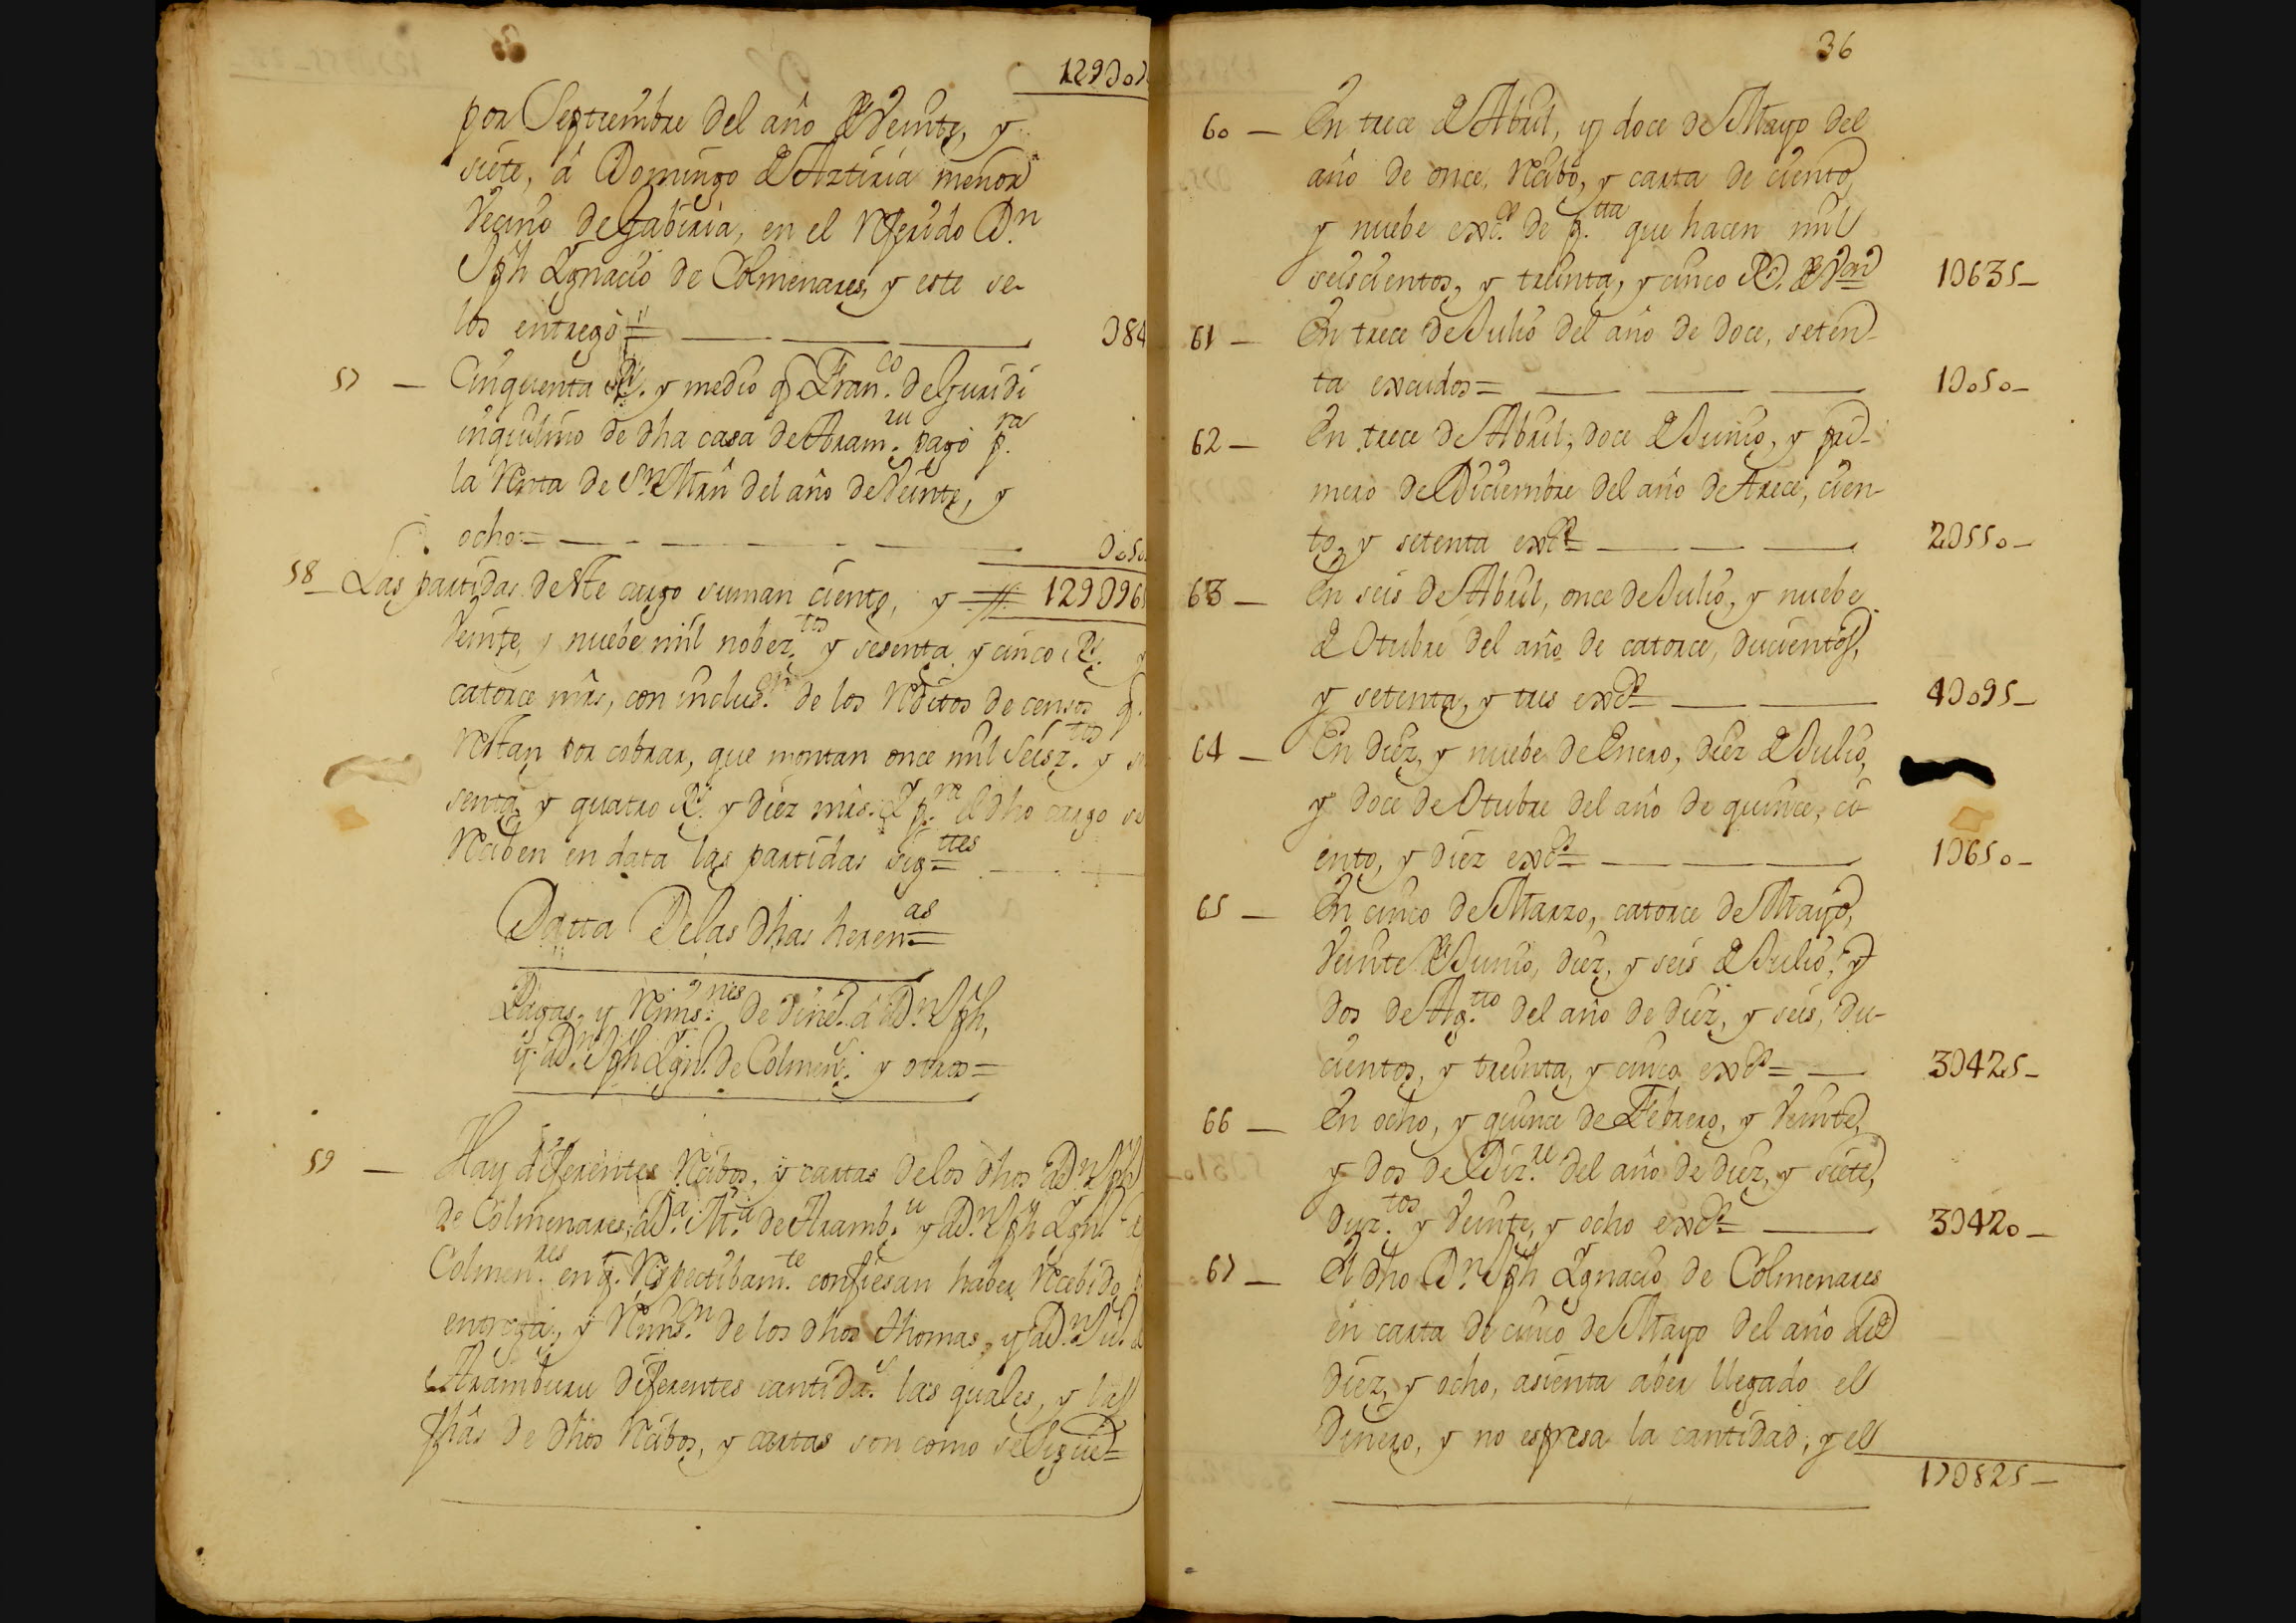 129D0
por Septiembre del año de Veinte, y
siete, â Domingo de Aztiria menor
Vecino de Gabiria, en el Referido Dn.
Jph Ygnacio de Colmenares, y este se
los entregò= 084
57 — Cinquenta Rs. y medio q Franco. de Guridi
inquilino de dha casa de Aramru. pagò pra.
la Renta de Sn Mrn del año de Veinte, y
ocho= D050
58 — Las partidas deste cargo suman ciento, y = 129D965
Veinte, y nuebe mil nobeztos. y sesenta y cinco Rs. y
catorce mrs, con incluson. de los Reditos de censos q.
Restan por cobrar, que montan once mil Seisztos. y se
senta, y quatro Rs. y diez mrs. Y pra. el dho cargo se
Reciben en data las partidas sigttes
Datta Delas dhas herenas=
Pagas, y Rems.nes de diner. â Dn. Jph,
y â Dn. Jph Ygn. de Colmens. y otros=
59 — Hay diferentes Recibos, y cartas de los dhos Dn. Jph
de Colmenares, Da. Ma. de Arambu. y Dn. Jph Ygn. de
Colmenres. en q. Respectibamte. confiesan haber Recebido,
entrega, y Remson. de los dhos thomas, y Dn. Ju. de
Aramburu diferentes cantidas. las quales, y las
fhâs de dhos Recibos, y cartas son como se Siguen=
36
60 — En trece de Abril, y doce de Mayo del
año de once, Recibo, y carta de ciento,
y nuebe excs. de ptta. que hacen mil
seiscientos, y treinta, y cinco Rs. de Von 1D635—
61 — En trece de Julio del año de doce, seten-
ta excudos= 1D050—
62 — En trece de Abril, doce de Junio, y pri-
mero de Diciembre del año de trece, cien-
to, y setenta excs= 2D550—
63 — En seis de Abril, once de Julio, y nuebe
de Otubre del año de catorce, ducientos,
y setenta, y tres excs= 4D095—
64 — En diez, y nuebe de Enero, diez de Julio,
y doce de Otubre del año de quince, ci-
ento, y diez excs= 1D650—
65 — En cinco de Marzo, catorce de Mayo,
Veinte de Junio, diez, y seis de Julio, y
dos de Agtto. del año de diez, y seis, du-
cientos, y treinta, y cinco excs= 3D425—
66 — En ocho, y quince de Febrero, y Veinte,
y dos de Dizre. del año de diez, y siete,
Duztos. y Veinte, y ocho excs= 3D420—
67 — El dho Dn. Jph Ygnacio de Colmenares
en carta de cinco de Mayo del año de
diez, y ocho, asienta aber llegado el
dinero, y no espresa la cantidad, y el
17D825—